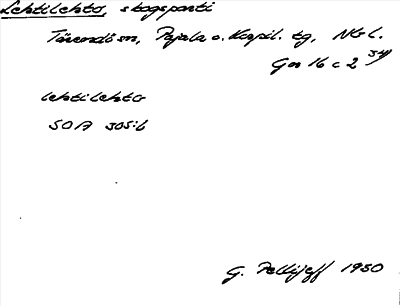 Lehtilehto, skogsparti
Tärendö sn, Pajala o. Korpil. tg, Nbl.
Gen 16 c 2 34
lehtilehto
SOA 305:6
G. Pellijeff 1980